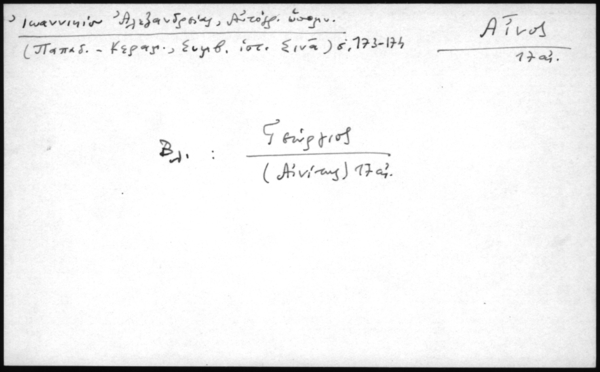 Ἰωαννικίου Ἀλεξανδρείας, Αὐτόγρ. ὑπόμν.
(Παπαδ. - Κεραμ., Συμβ. ἱστ. Σινᾶ) σ. 173-174
Αἶνος
17 αἰ.
Βλ. : Γεώργιος
(Αἰνίτης) 17 αἰ.